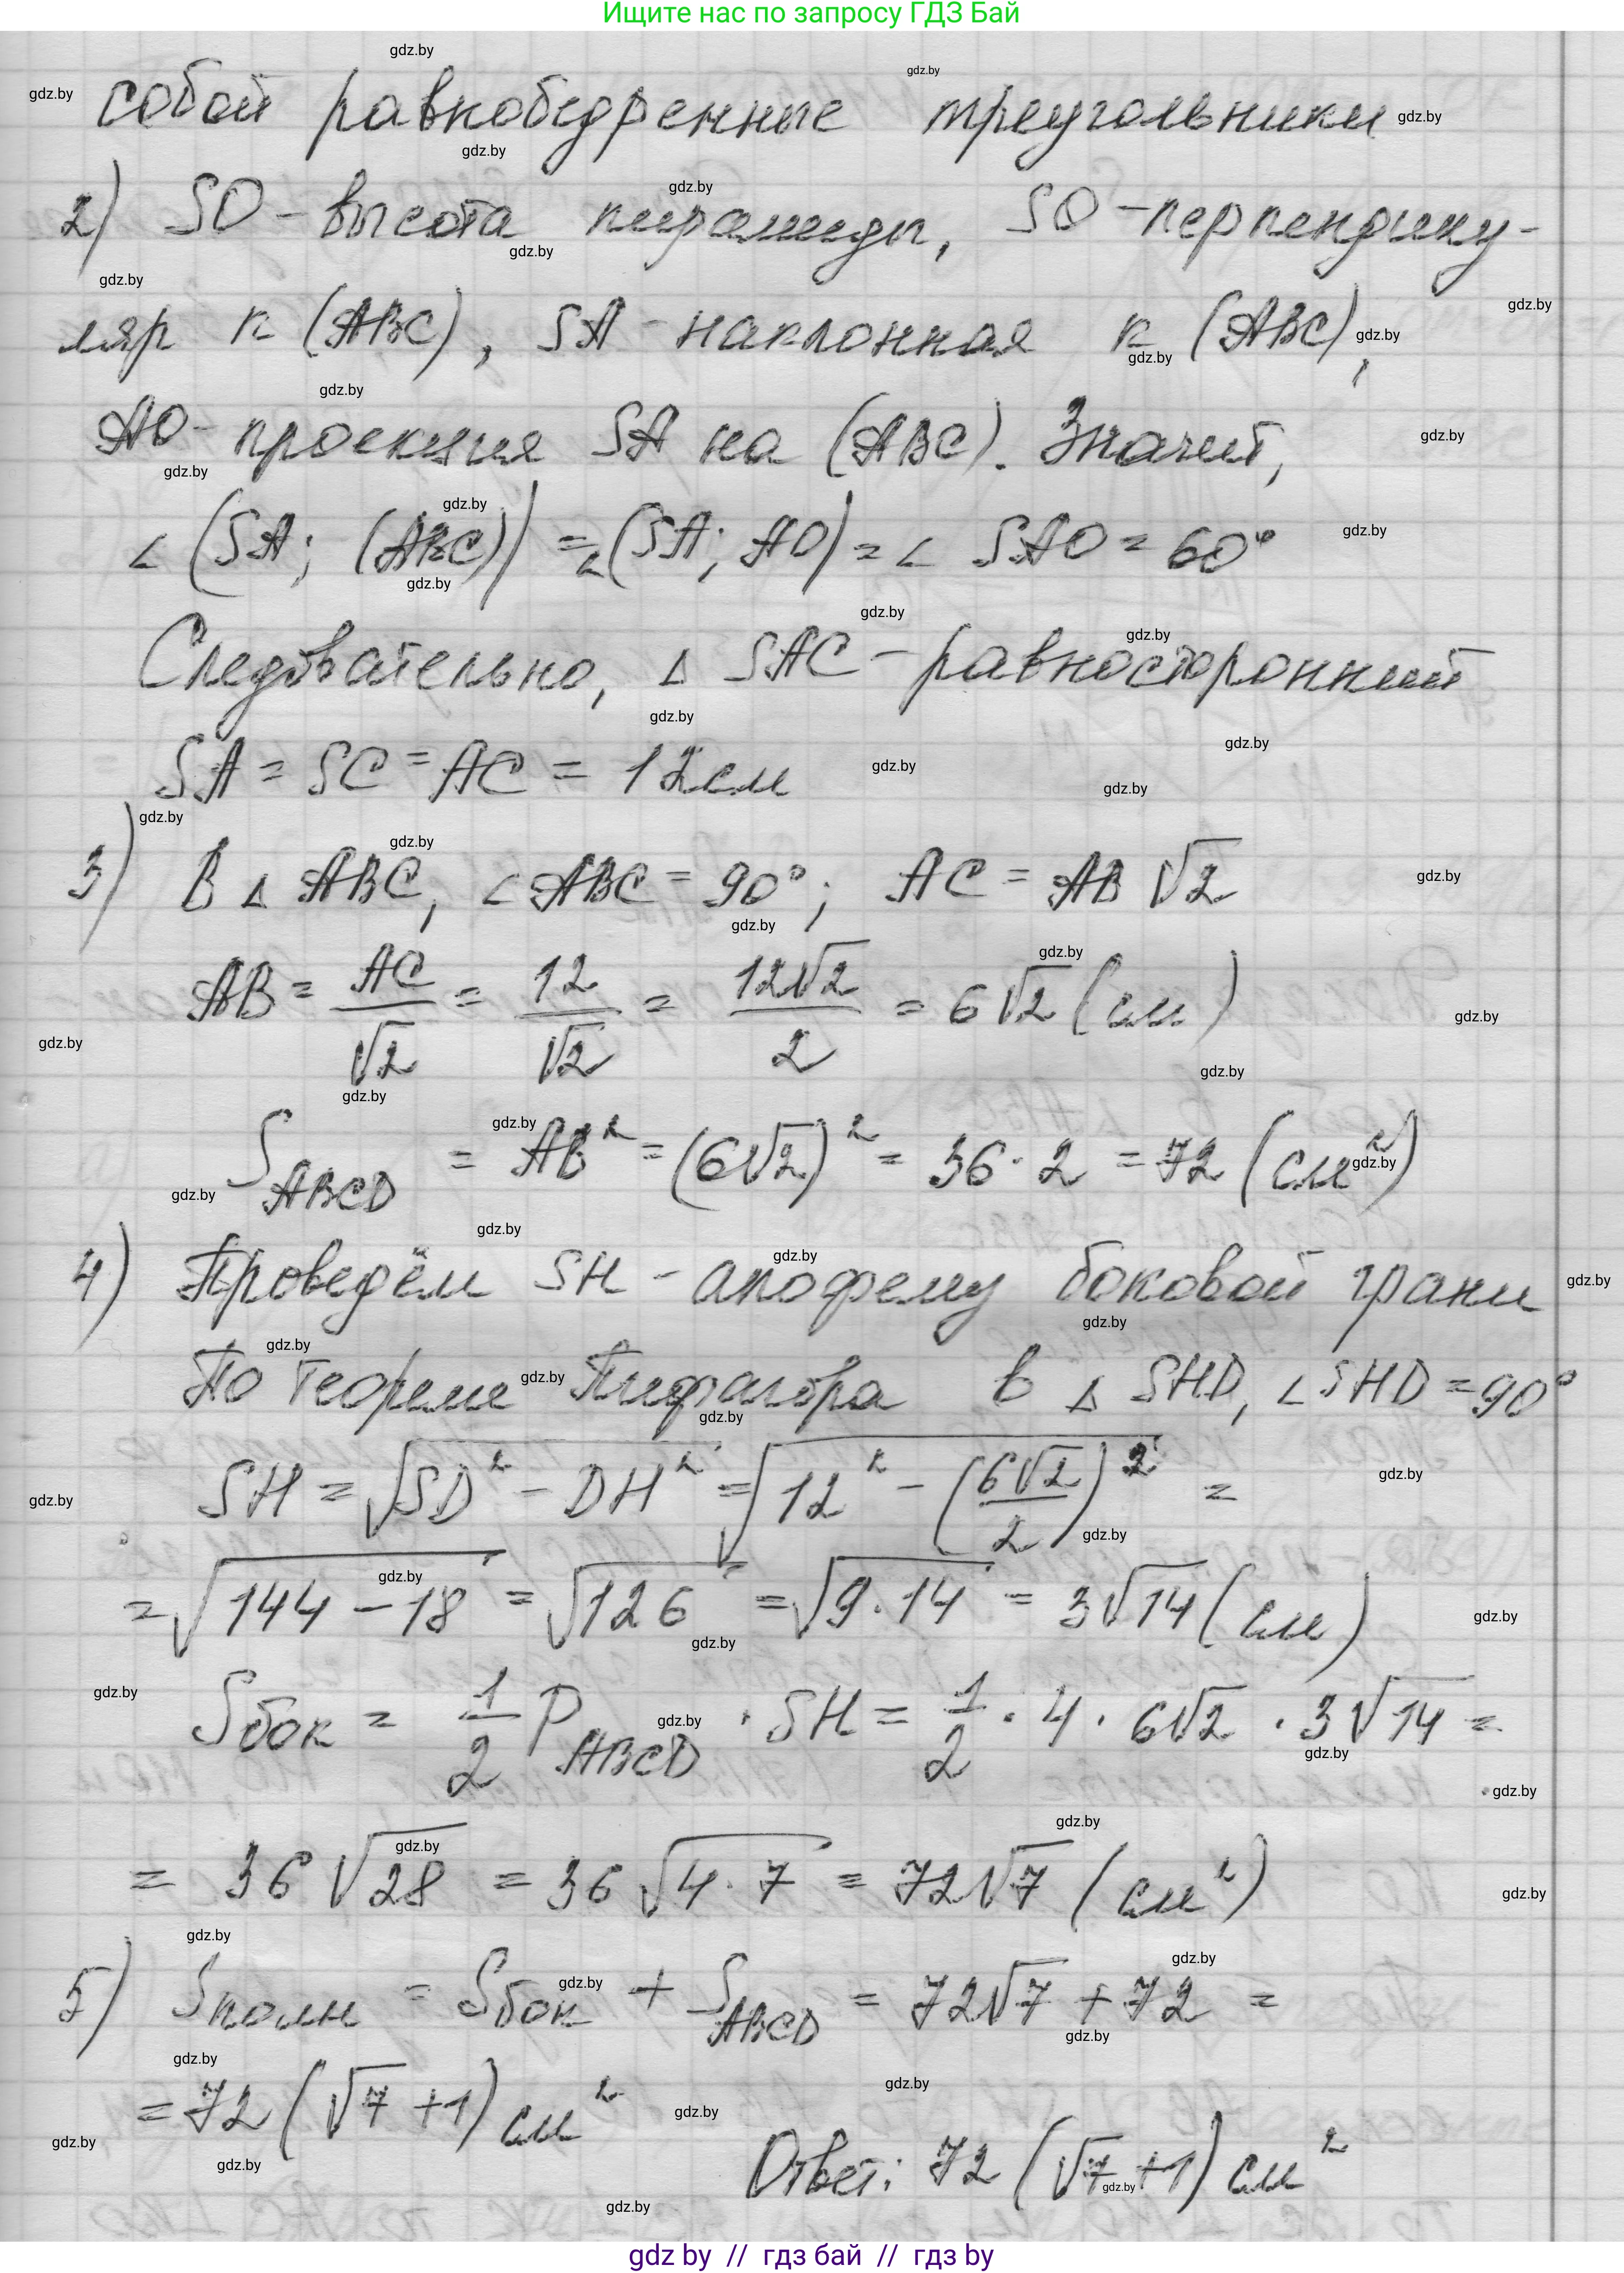 Ищите нас по запросу ГДЗ Бай
собой равнобедренные треугольники
2) SO - высота пирамиды, SO - перпендику-
ляр к (ABC), SA - наклонная к (ABC),
AO - проекция SA на (ABC). Значит,
∠(SA; (ABC)) = ∠(SA; AO) = ∠ SAO = 60°
Следовательно, Δ SAC - равносторонний
SA = SC = AC = 12 см
3) В Δ ABC, ∠ABC = 90°; AC = AB √2
AB = AC/√2 = 12/√2 = 12√2/2 = 6√2 (см)
S ABCD = AB² = (6√2)² = 36 · 2 = 72 (см²)
4) Проведём SH - апофему боковой грани
По теореме Пифагора в Δ SHD, ∠SHD = 90°
SH = √(SD² - DH²) = √(12² - (6√2/2)²) =
= √(144 - 18) = √126 = √(9·14) = 3√14 (см)
Sбок = 1/2 P ABCD · SH = 1/2 · 4 · 6√2 · 3√14 =
= 36√28 = 36√(4·7) = 72√7 (см²)
5) Sполн = Sбок + S ABCD = 72√7 + 72 =
= 72(√7 + 1) см²
Ответ: 72(√7 + 1) см²
gdz by // гдз бай // гдз by